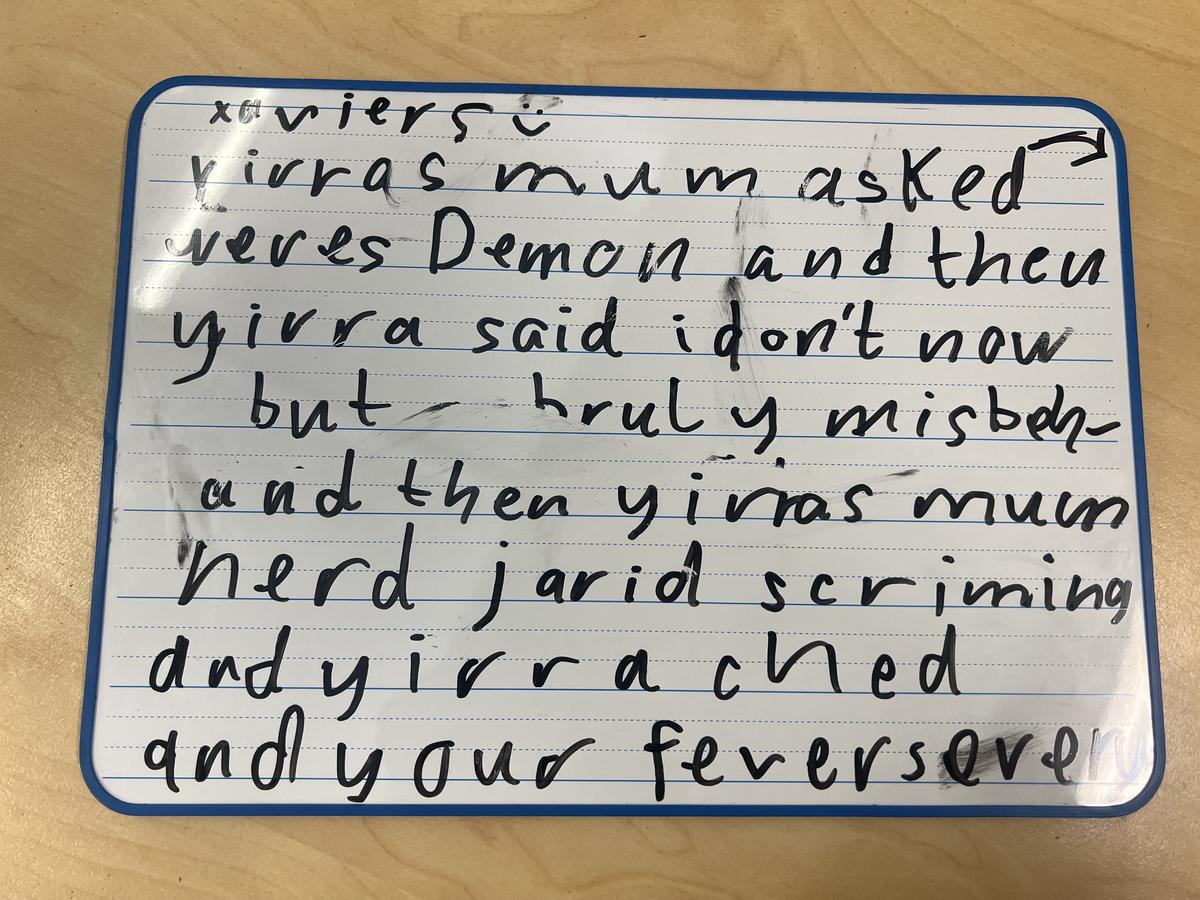 xaviers
yirras mum asked
veres Demon and then
yirra said i don't now
but bruly misbeh-
and then yirras mum
herd jarid scriming
and yirra ched
and your fevers every